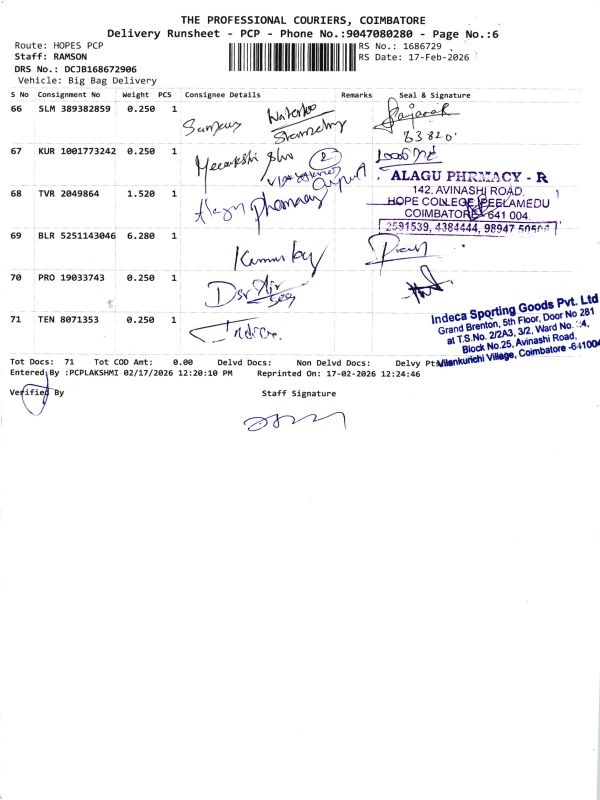 THE PROFESSIONAL COURIERS, COIMBATORE
Delivery Runsheet - PCP - Phone No.:9047080280 - Page No.:6
Route: HOPES PCP
RS No.: 1686729
Staff: RAMSON
RS Date: 17-Feb-2026
DRS No.: DCJB168672906
Vehicle: Big Bag Delivery
S No Consignment No Weight PCS Consignee Details Remarks Seal & Signature
66 SLM 389382859 0.250 1
63820
67 KUR 1001773242 0.250 1 Meenakshi
2
Airport
68 TVR 2049864 1.520 1 Alagu Pharmacy
ALAGU PHRMACY - R
142, AVINASHI ROAD,
HOPE COLLEGE, PEELAMEDU
COIMBATORE - 641 004.
2591539, 4384444, 98947 50506
69 BLR 5251143046 6.280 1
70 PRO 19033743 0.250 1
71 TEN 8071353 0.250 1 Indica
Indeca Sporting Goods Pvt. Ltd
Grand Brenton, 5th Floor, Door No 281
at T.S.No. 2/2A3, 3/2, Ward No.
Block No.25, Avinashi Road,
Vilankurichi Village, Coimbatore -641004
Tot Docs: 71 Tot COD Amt: 0.00 Delvd Docs: Non Delvd Docs: Delvy
Entered By :PCPLAKSHMI 02/17/2026 12:20:10 PM Reprinted On: 17-02-2026 12:24:46
Verified By Staff Signature